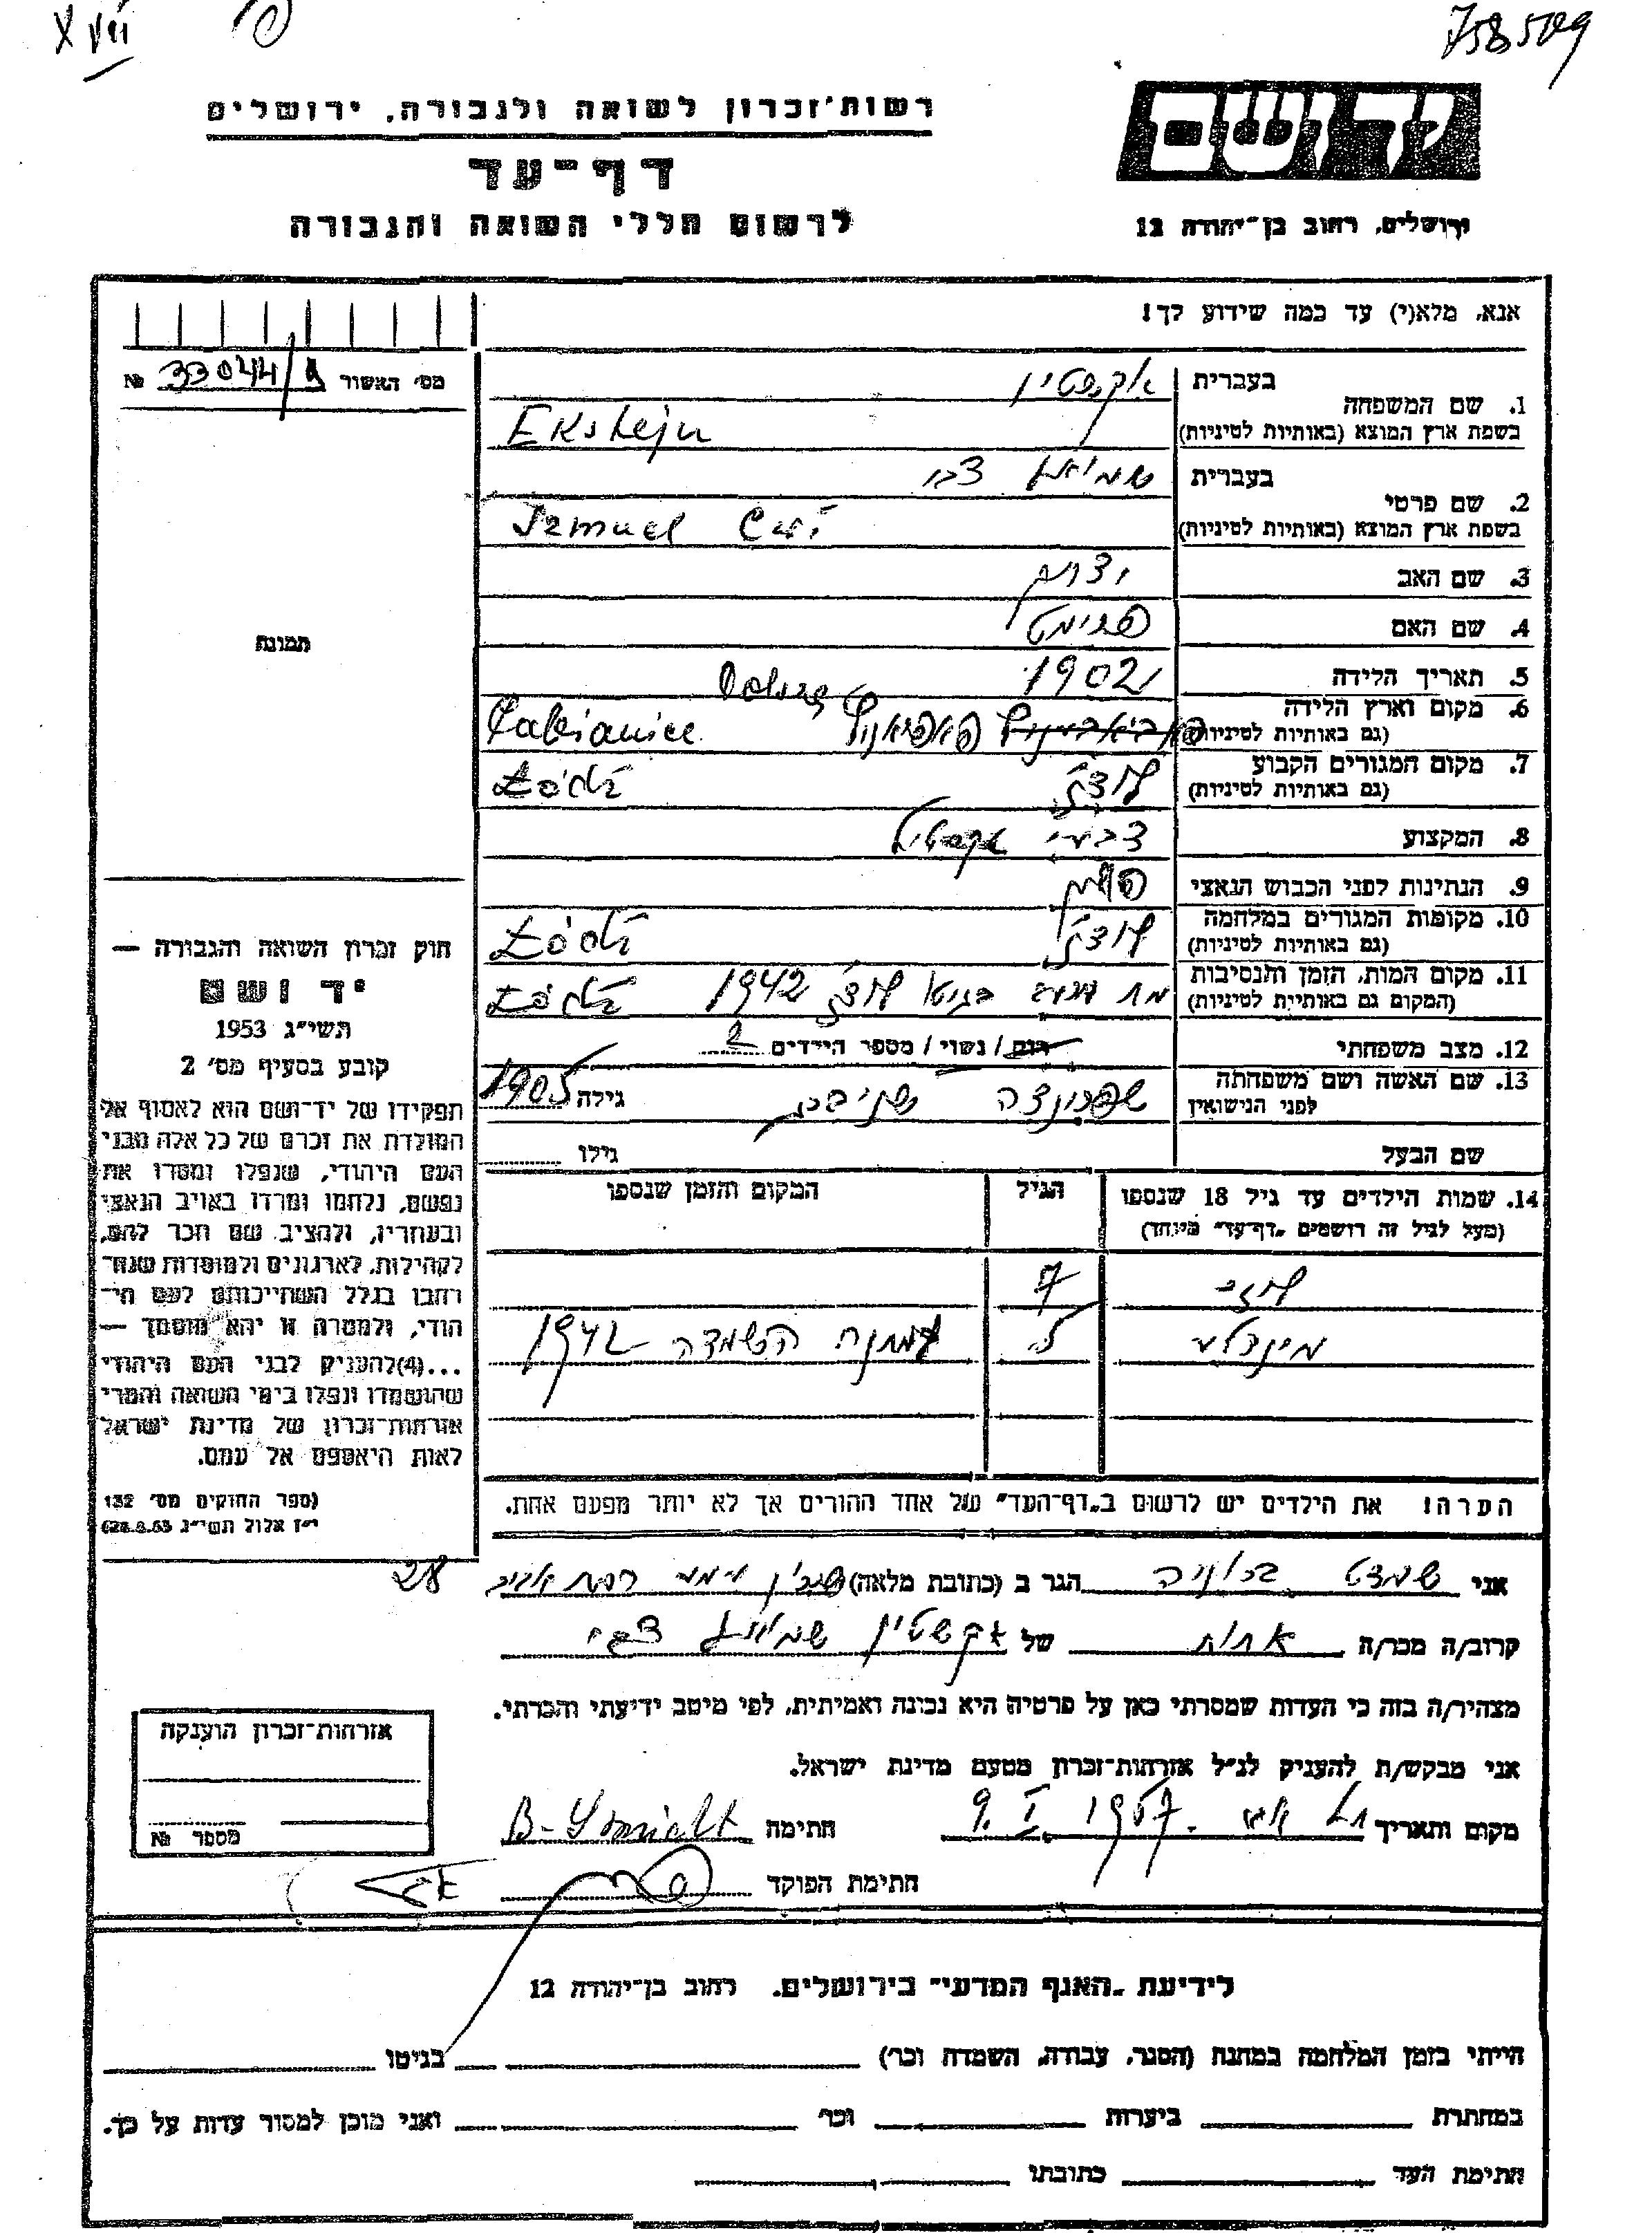 758509
רשות־זכרון לשואה ולגבורה, ירושלים
יד ושם
דף־עד
לרשום חללי השואה והגבורה
ירושלים, רחוב בן־יהודה 12
אנא, מלא(י) עד כמה שידוע לך!
מס׳ האשור № 33044/
1. שם המשפחה
בעברית אקשטיין
בשפת ארץ המוצא (באותיות לטיניות) Eksztejn
2. שם פרטי
בעברית שמואל צבי
בשפת ארץ המוצא (באותיות לטיניות) Szmuel Cwi
3. שם האב
4. שם האם
5. תאריך הלידה 1902
6. מקום וארץ הלידה
(גם באותיות לטיניות) פאביאניץ Pabianice
7. מקום המגורים הקבוע
(גם באותיות לטיניות) לודז׳ Łódź
8. המקצוע צבעי טקסטיל
9. הנתינות לפני הכבוש הנאצי פולין
10. מקומות המגורים במלחמה
(גם באותיות לטיניות) לודז׳ Łódź
11. מקום המות, הזמן והנסיבות
(המקום גם באותיות לטיניות) מת בגיטו לודז׳ 1942 Łódź
12. מצב משפחתי רוק / נשוי / מספר הילדים 2
13. שם האשה ושם משפחתה
לפני הנישואין גילה 1905
שם הבעל גילו
14. שמות הילדים עד גיל 18 שנספו
(מעל לגיל זה רושמים „דף־עד״ מיוחד)
הגיל
המקום והזמן שנספו
7
מינדלע 5 במחנה השמדה 1942
הערה! את הילדים יש לרשום ב„דף־העד״ של אחד ההורים אך לא יותר מפעם אחת.
תמונה
חוק זכרון השואה והגבורה —
יד ושם
תשי״ג 1953
קובע בסעיף מס׳ 2
תפקידו של יד־ושם הוא לאסוף אל
המולדת את זכרם של כל אלה מבני
העם היהודי, שנפלו ומסרו את
נפשם, נלחמו ומרדו באויב הנאצי
ובעוזריו, ולהציב שם וזכר להם,
לקהילות, לארגונים ולמוסדות שנח־
רבו בגלל השתייכותם לעם הי־
הודי, ולמטרה זו יהא מוסמך —
...(4) להעניק לבני העם היהודי
שהושמדו ונפלו בימי השואה והמרי
אזרחות־זכרון של מדינת ישראל
לאות היאספם אל עמם.
(ספר החוקים מס׳ 132
י״ז אלול תשי״ג 28.8.53)
אני שמידט ברוניה הגר ב (כתובת מלאה) רמת אביב 28
קרוב/ה מכר/ה אחות של אקשטיין שמואל צבי
מצהיר/ה בזה כי העדות שמסרתי כאן על פרטיה היא נכונה ואמיתית, לפי מיטב ידיעתי והכרתי.
אני מבקש/ת להעניק לנ״ל אזרחות־זכרון מטעם מדינת ישראל.
מקום ותאריך 9. I. 1957 חתימה B-Szmidt
חתימת הפוקד
אזרחות־זכרון הוענקה
מספר №
לידיעת „האגף המדעי״ בירושלים, רחוב בן־יהודה 12
הייתי בזמן המלחמה במחנה (הסגר, עבודה, השמדה וכו׳) בגיטו
במחתרת ביערות וכו׳ ואני מוכן למסור עדות על כך.
חתימת העד כתובתו